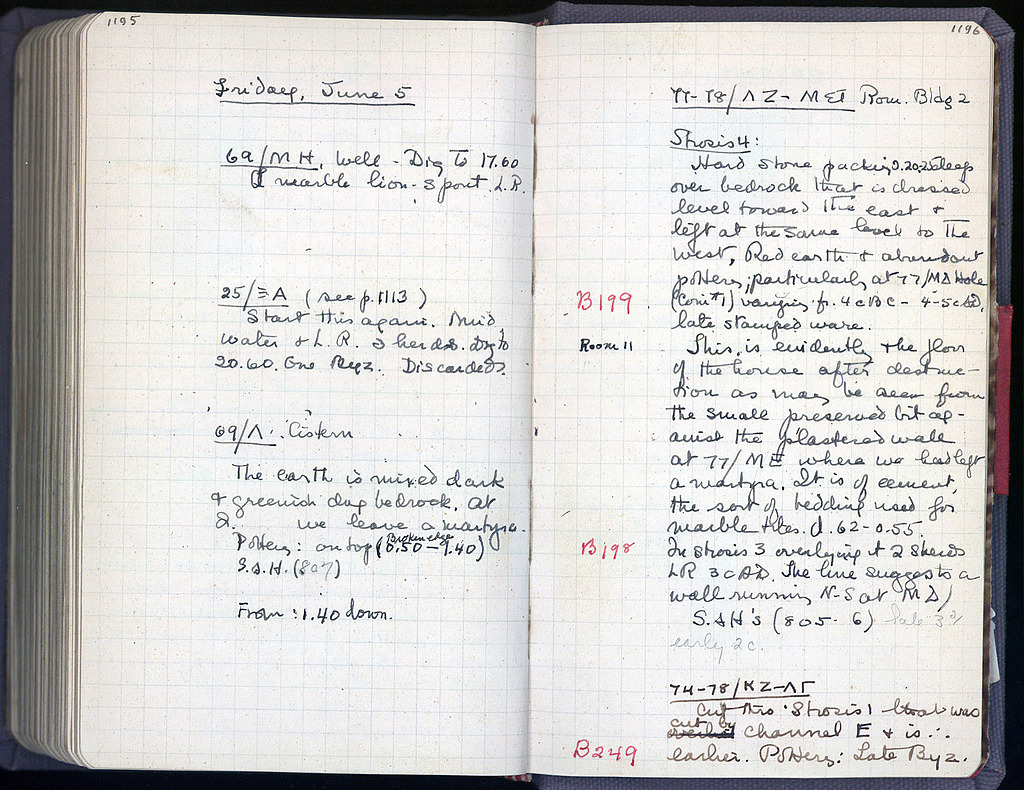 1195
Friday, June 5
69/MH, Well - Dig to 17.60
marble lion-spout. L.R.
25/ΞA (see p. 1113)
Start this again. Mud,
water & L.R. sherds. Dig to
20.60. One Byz. Discarded.
69/Λ. Cistern
The earth is mixed dark
& greenish dug bedrock, at
2. we leave a martyra.
Broken edge
Pottery: on top (0.50-1.40)
S.&H. (807)
From: 1.40 down.
1196
77-78/ΛΖ- Rom. Bldg 2
Strosis 4:
Hard stone packing 0.20-25 deep
over bedrock that is dressed
level toward the east &
left at the same level to the
west, Red earth & abundant
pottery, particularly at 77/ΜΔ Hole
B199
(Coin #1) varying fr. 4cBC - 4-5cAD,
late stamped ware.
Room 11
This is evidently the floor
of the house after destruc-
tion as may be seen from
the small preserved bit ag-
ainst the plastered wall
at 77/ΜΕ where we had left
a martyra. It is of cement,
the sort of bedding used for
marble tiles. d. 62-0.55.
B198
In strosis 3 overlying it 2 sherds
LR 3cAD. The line suggests a
wall running N-S at ΜΔ/
S.&H's (805-6) late 3
early 2c.
74-78/ΚΖ-ΛΓ
Cut thro' Strosis 1 that was
cut by
channel E & is ∴
B249
earlier. Pottery: Late Byz.